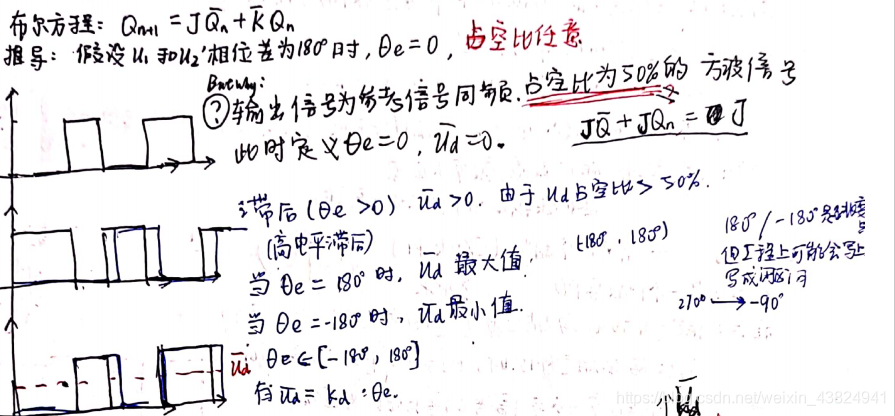 布尔方程: Qn+1 = JQ̄n + K̄Qn
推导: 假设 U1 和 U2'相位差为180°时, θe = 0, 占空比任意
But why:
? 输出信号为参考信号同频. 占空比为50%的 方波信号
JQ̄ + JQn = J
此时定义 θe = 0, Ūd = 0.
滞后 (θe > 0) Ūd > 0. 由于 Ud 占空比 > 50%.
(高电平滞后)
(-180°, 180°)
180° / -180°
但工程上可能会写上
写成闭区间
当 θe = 180° 时, Ūd 最大值.
270° → -90°
当 θe = -180° 时, Ūd 最小值.
Ūd θe ∈ [-180°, 180°]
有 Ūd = Kd · θe.
https://blog.csdn.net/weixin_43824941